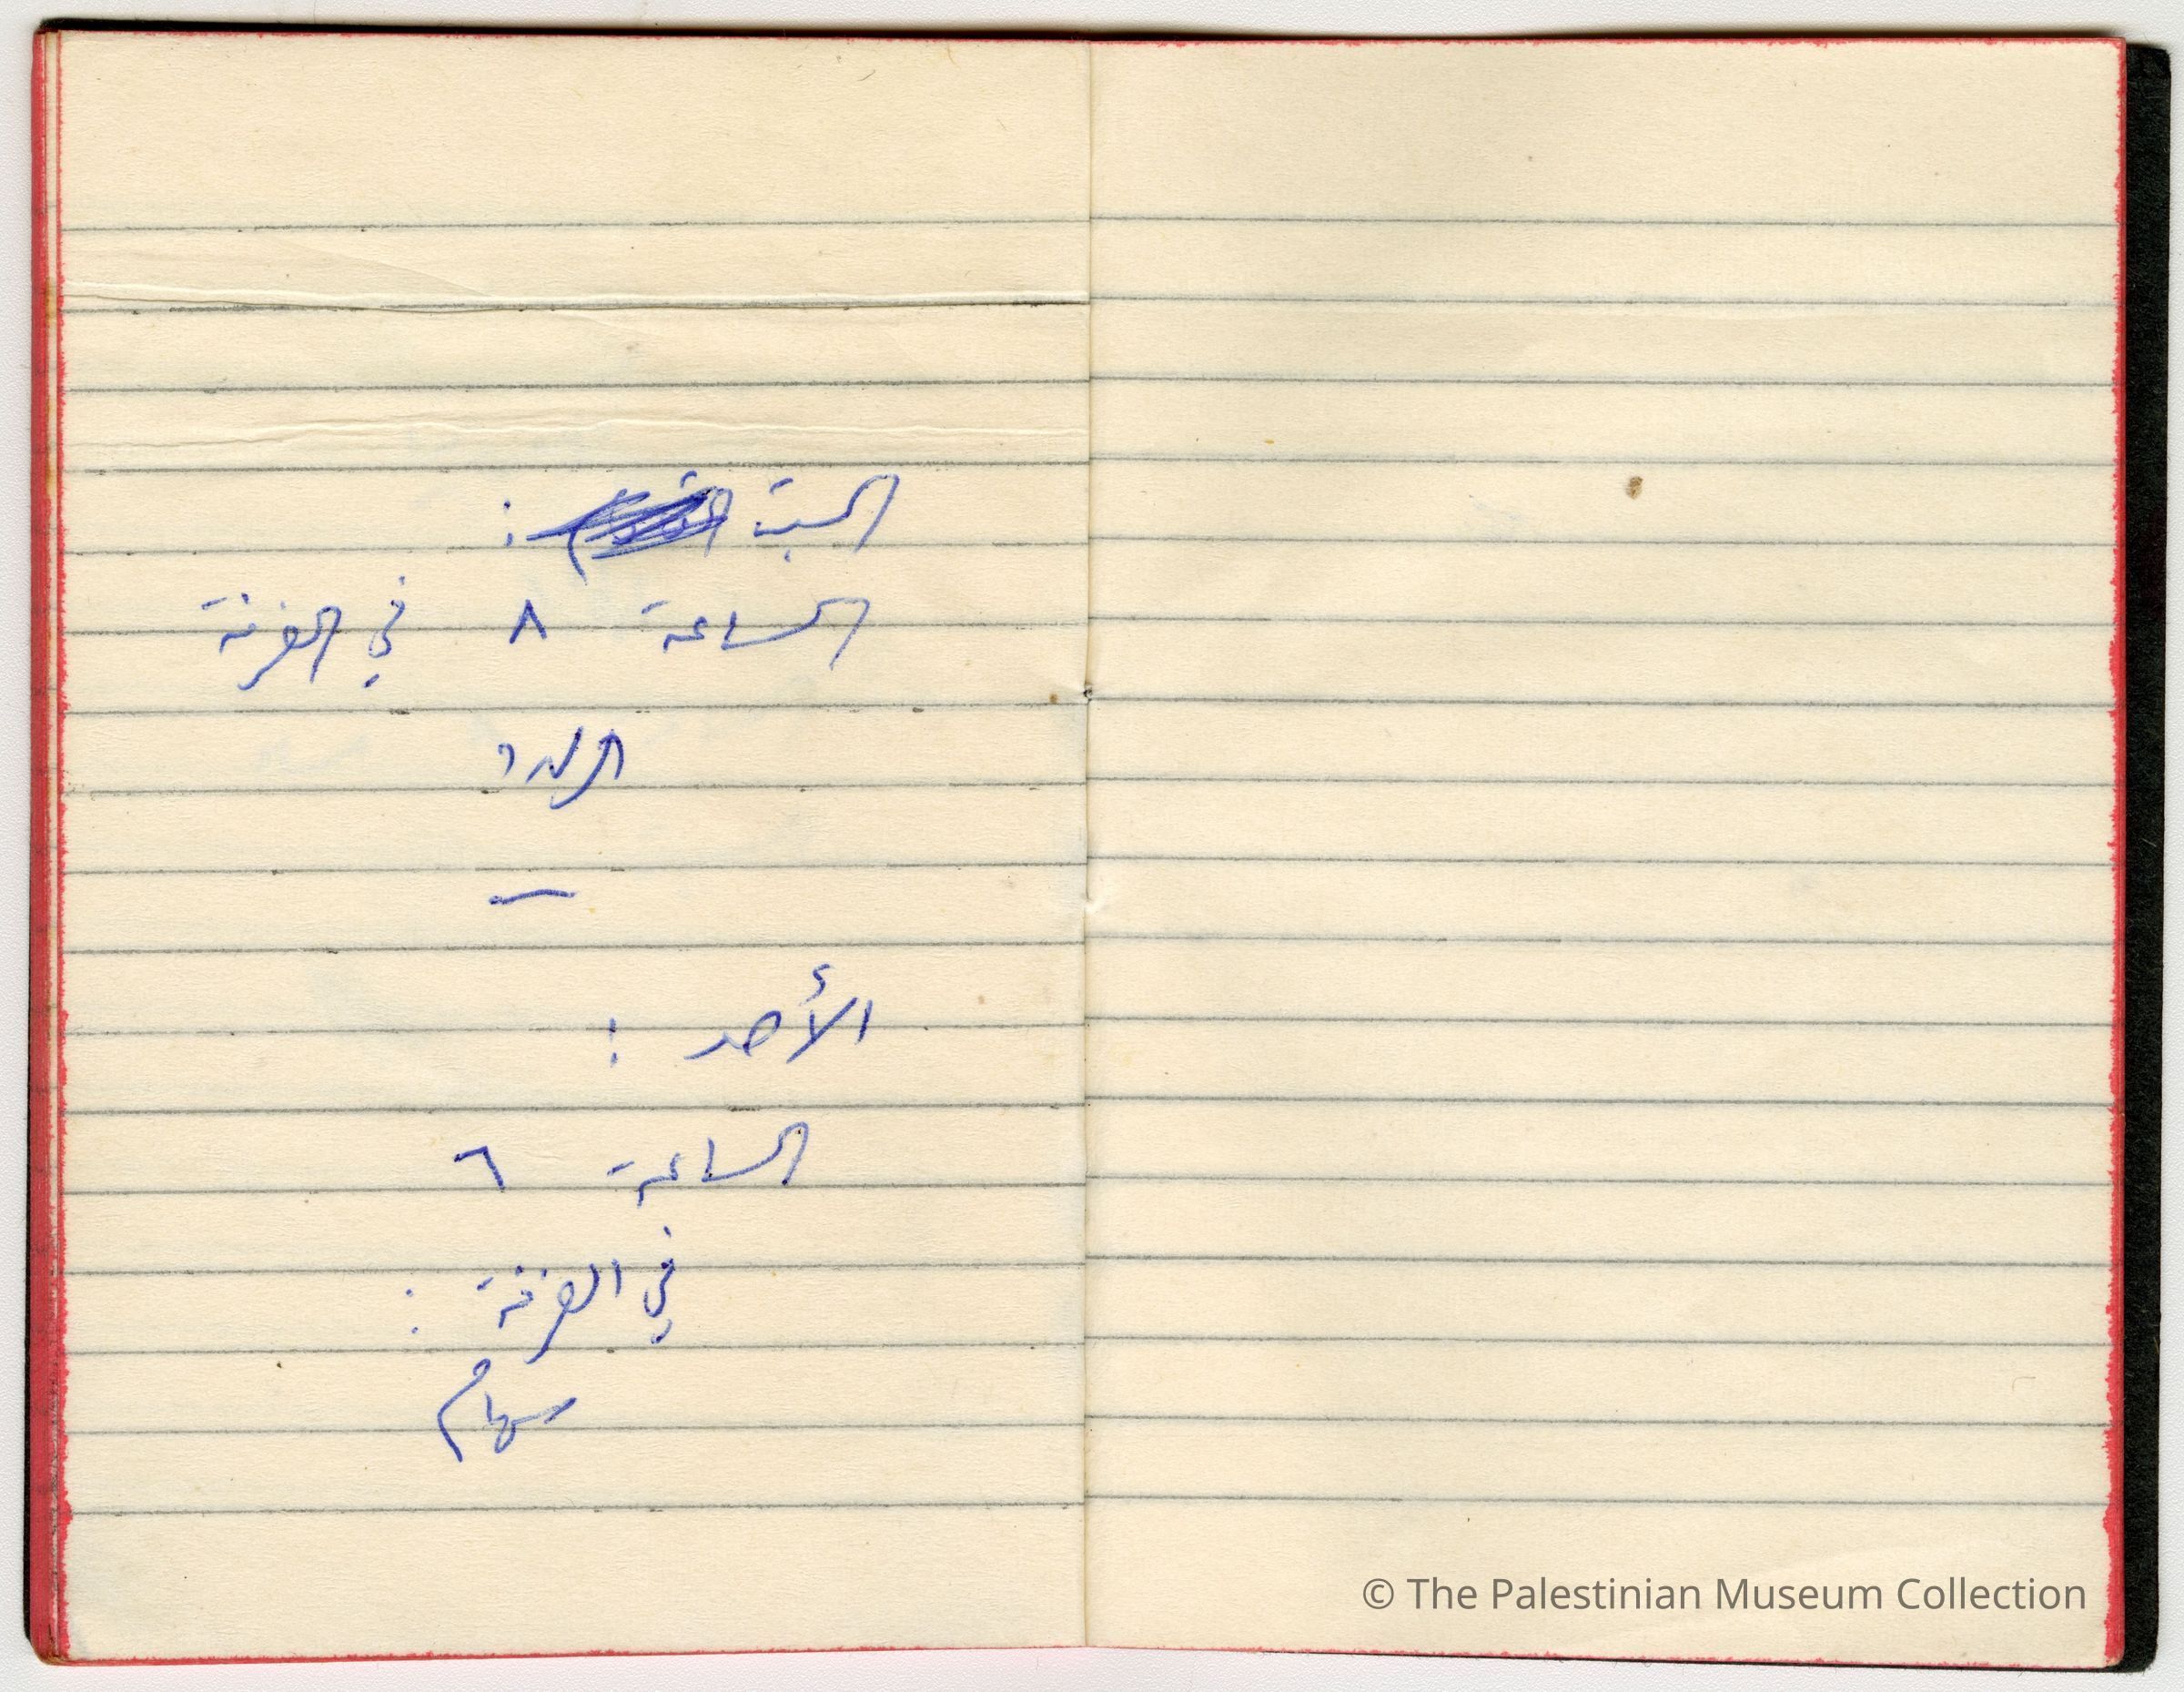 السبت :
الساعة ٨ في الغرفة
—
الأحد :
الساعة ٦
في الغرفة :
سهام
© The Palestinian Museum Collection